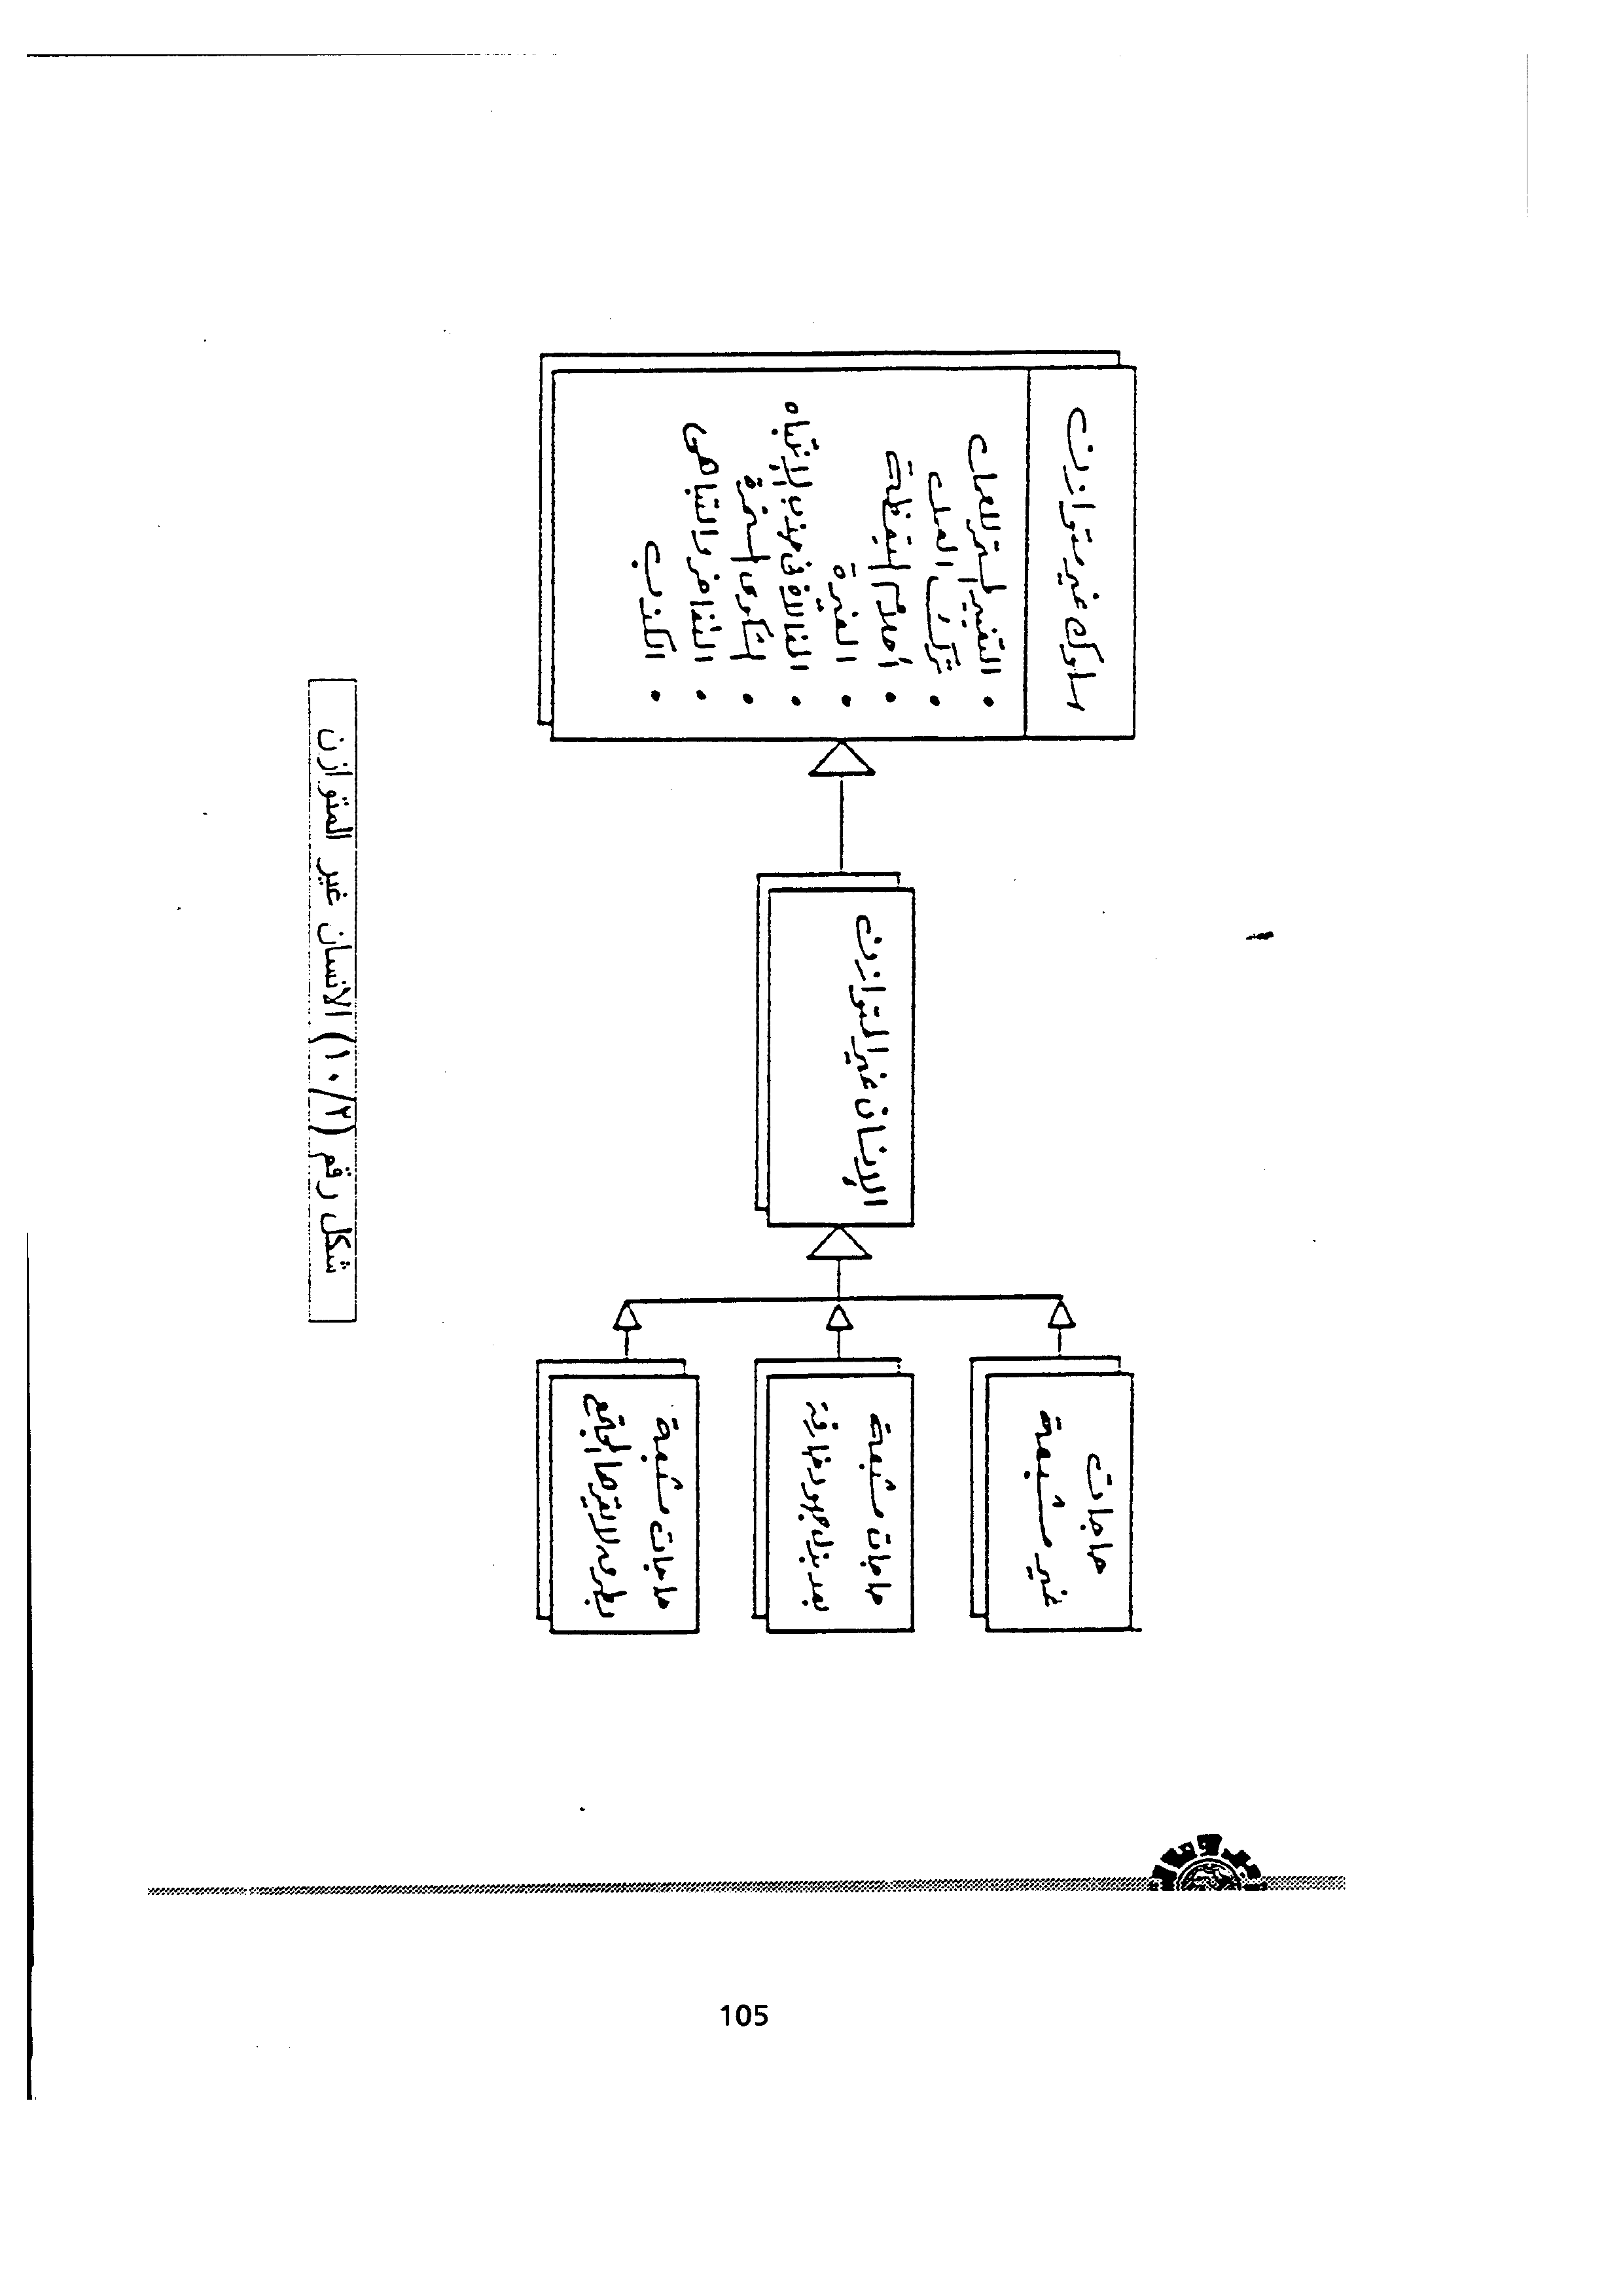 حاجات
غير مشبعة
حاجات مشبعة
بعد بذل جهود خارقة
حاجات مشبعة
بطرق لا يقرها المجتمع
الإنسان غير المتوازن
سلوك غير متوازن
• التغيير المستمر للعمل
• ترك العمل
• أحلام اليقظة
• الغيرة
• المغالاة في جذب الإنتباه
• الشكوى المستمرة
• التفاخر والتباهى
• الكذب
شكل رقم (١٠/٢) الانسان غير المتوازن
105